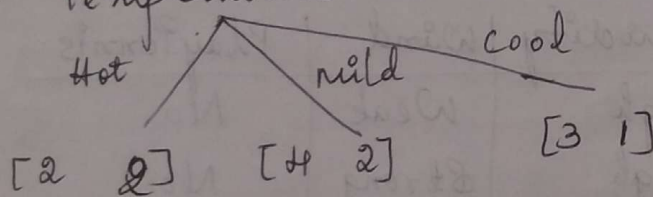 Hot mild cool
[2 2] [4 2] [3 1]
Weak